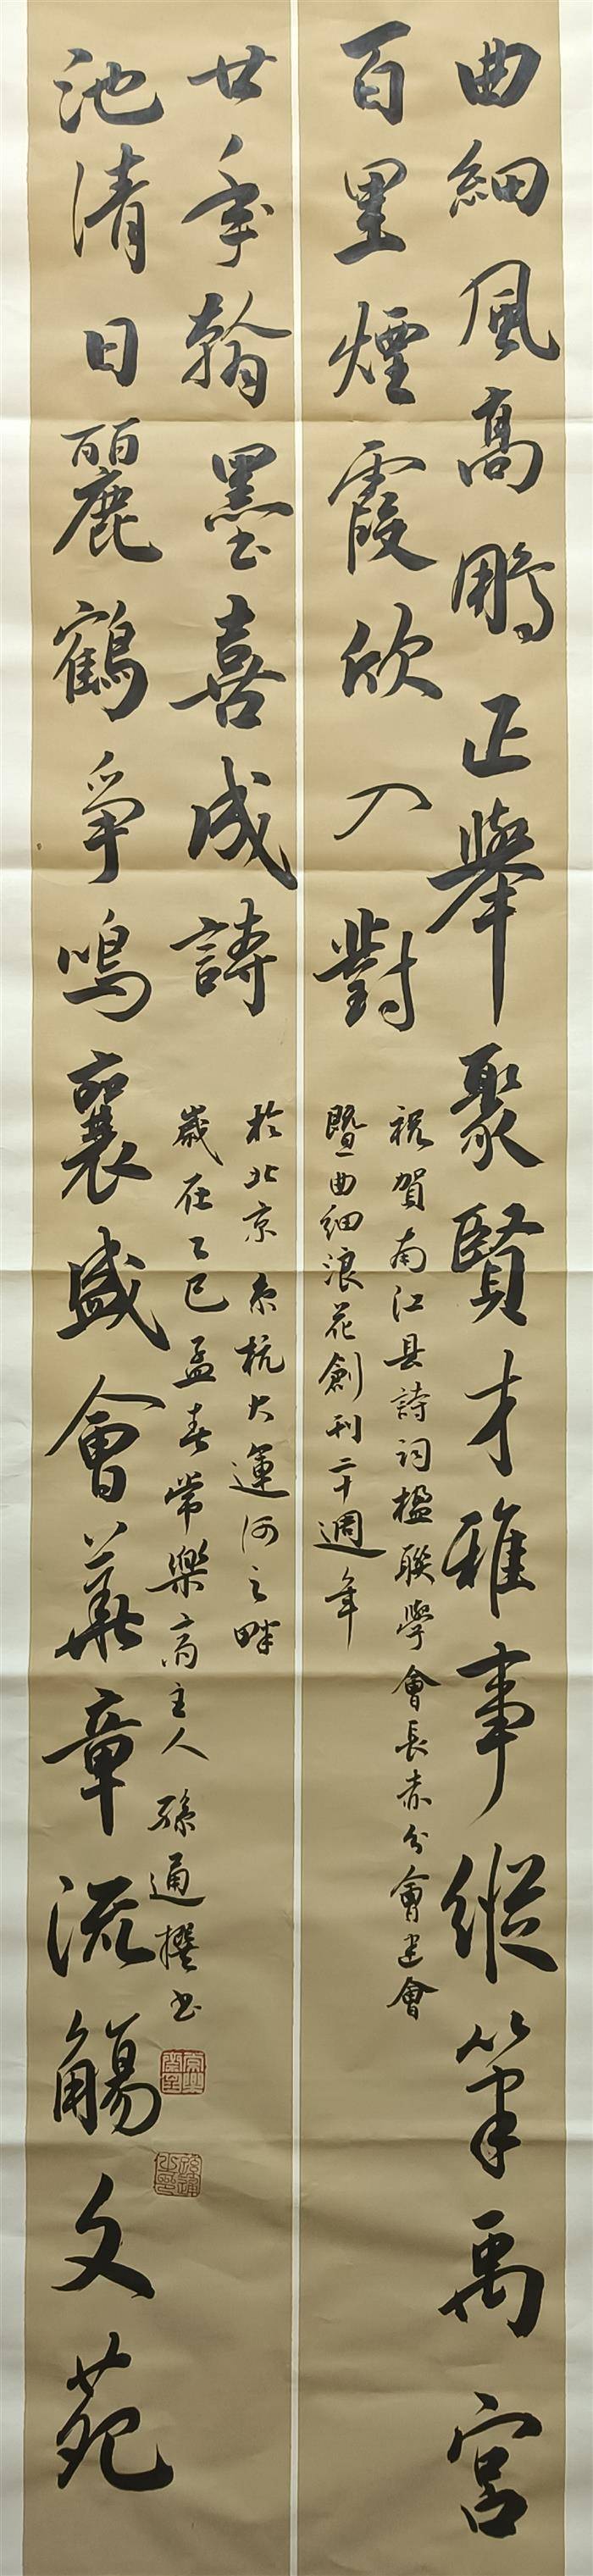 曲細風高鵬正舉聚賢才雅事縱筆禹宮
百里煙霞欣入對
祝賀南江县詩词楹聯學會長赤分會建會
暨曲細浪花創刊二十週年
池清日麗鶴爭鳴襄盛會華章流觴文苑
廿年翰墨喜成詩
於北京京杭大運河之畔
歲在乙巳孟春常樂齋主人孫通撰书
常樂齋主
孫通之印